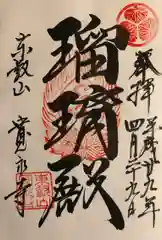 奉拝
平成廿九年
四月二十九日
瑠璃殿
東叡山
寛永寺